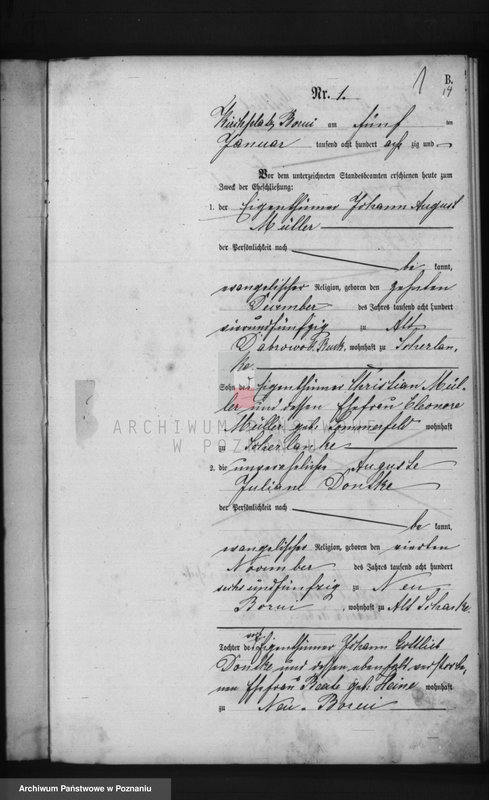 1 B.
14
Nr. 1.
Kirchplatz Borui am fünf ten
Januar tausend acht hundert acht zig und
Vor dem unterzeichneten Standesbeamten erschienen heute zum
Zweck der Eheschließung:
1. der Eigenthümer Johann August
Müller
der Persönlichkeit nach
be kannt,
evangelischer Religion, geboren den zehnten
December des Jahres tausend acht hundert
vierundfünfzig zu Alt
Dabrowo, wohnhaft zu Scherlan,
ke
Sohn des Eigenthümer Christian Mül-
ler und dessen Ehefrau Eleonore
Müller geb. Sommerfeld wohnhaft
zu Scherlanke
2. die unverehelichte Auguste
Juliane Donske
der Persönlichkeit nach
be kannt,
evangelischer Religion, geboren den vierten
November des Jahres tausend acht hundert
sechs undfünfzig zu Neu
Borui, wohnhaft zu Alt Scharke
Tochter des Eigenthümer Johann Gottlieb
Donske und dessen ebenfalls verstorbe,
nen Ehefrau Beate geb. Heine wohnhaft
zu Neu-Borui
ARCHIWUM PAŃSTWOWE
W POZNANIU
Archiwum Państwowe w Poznaniu